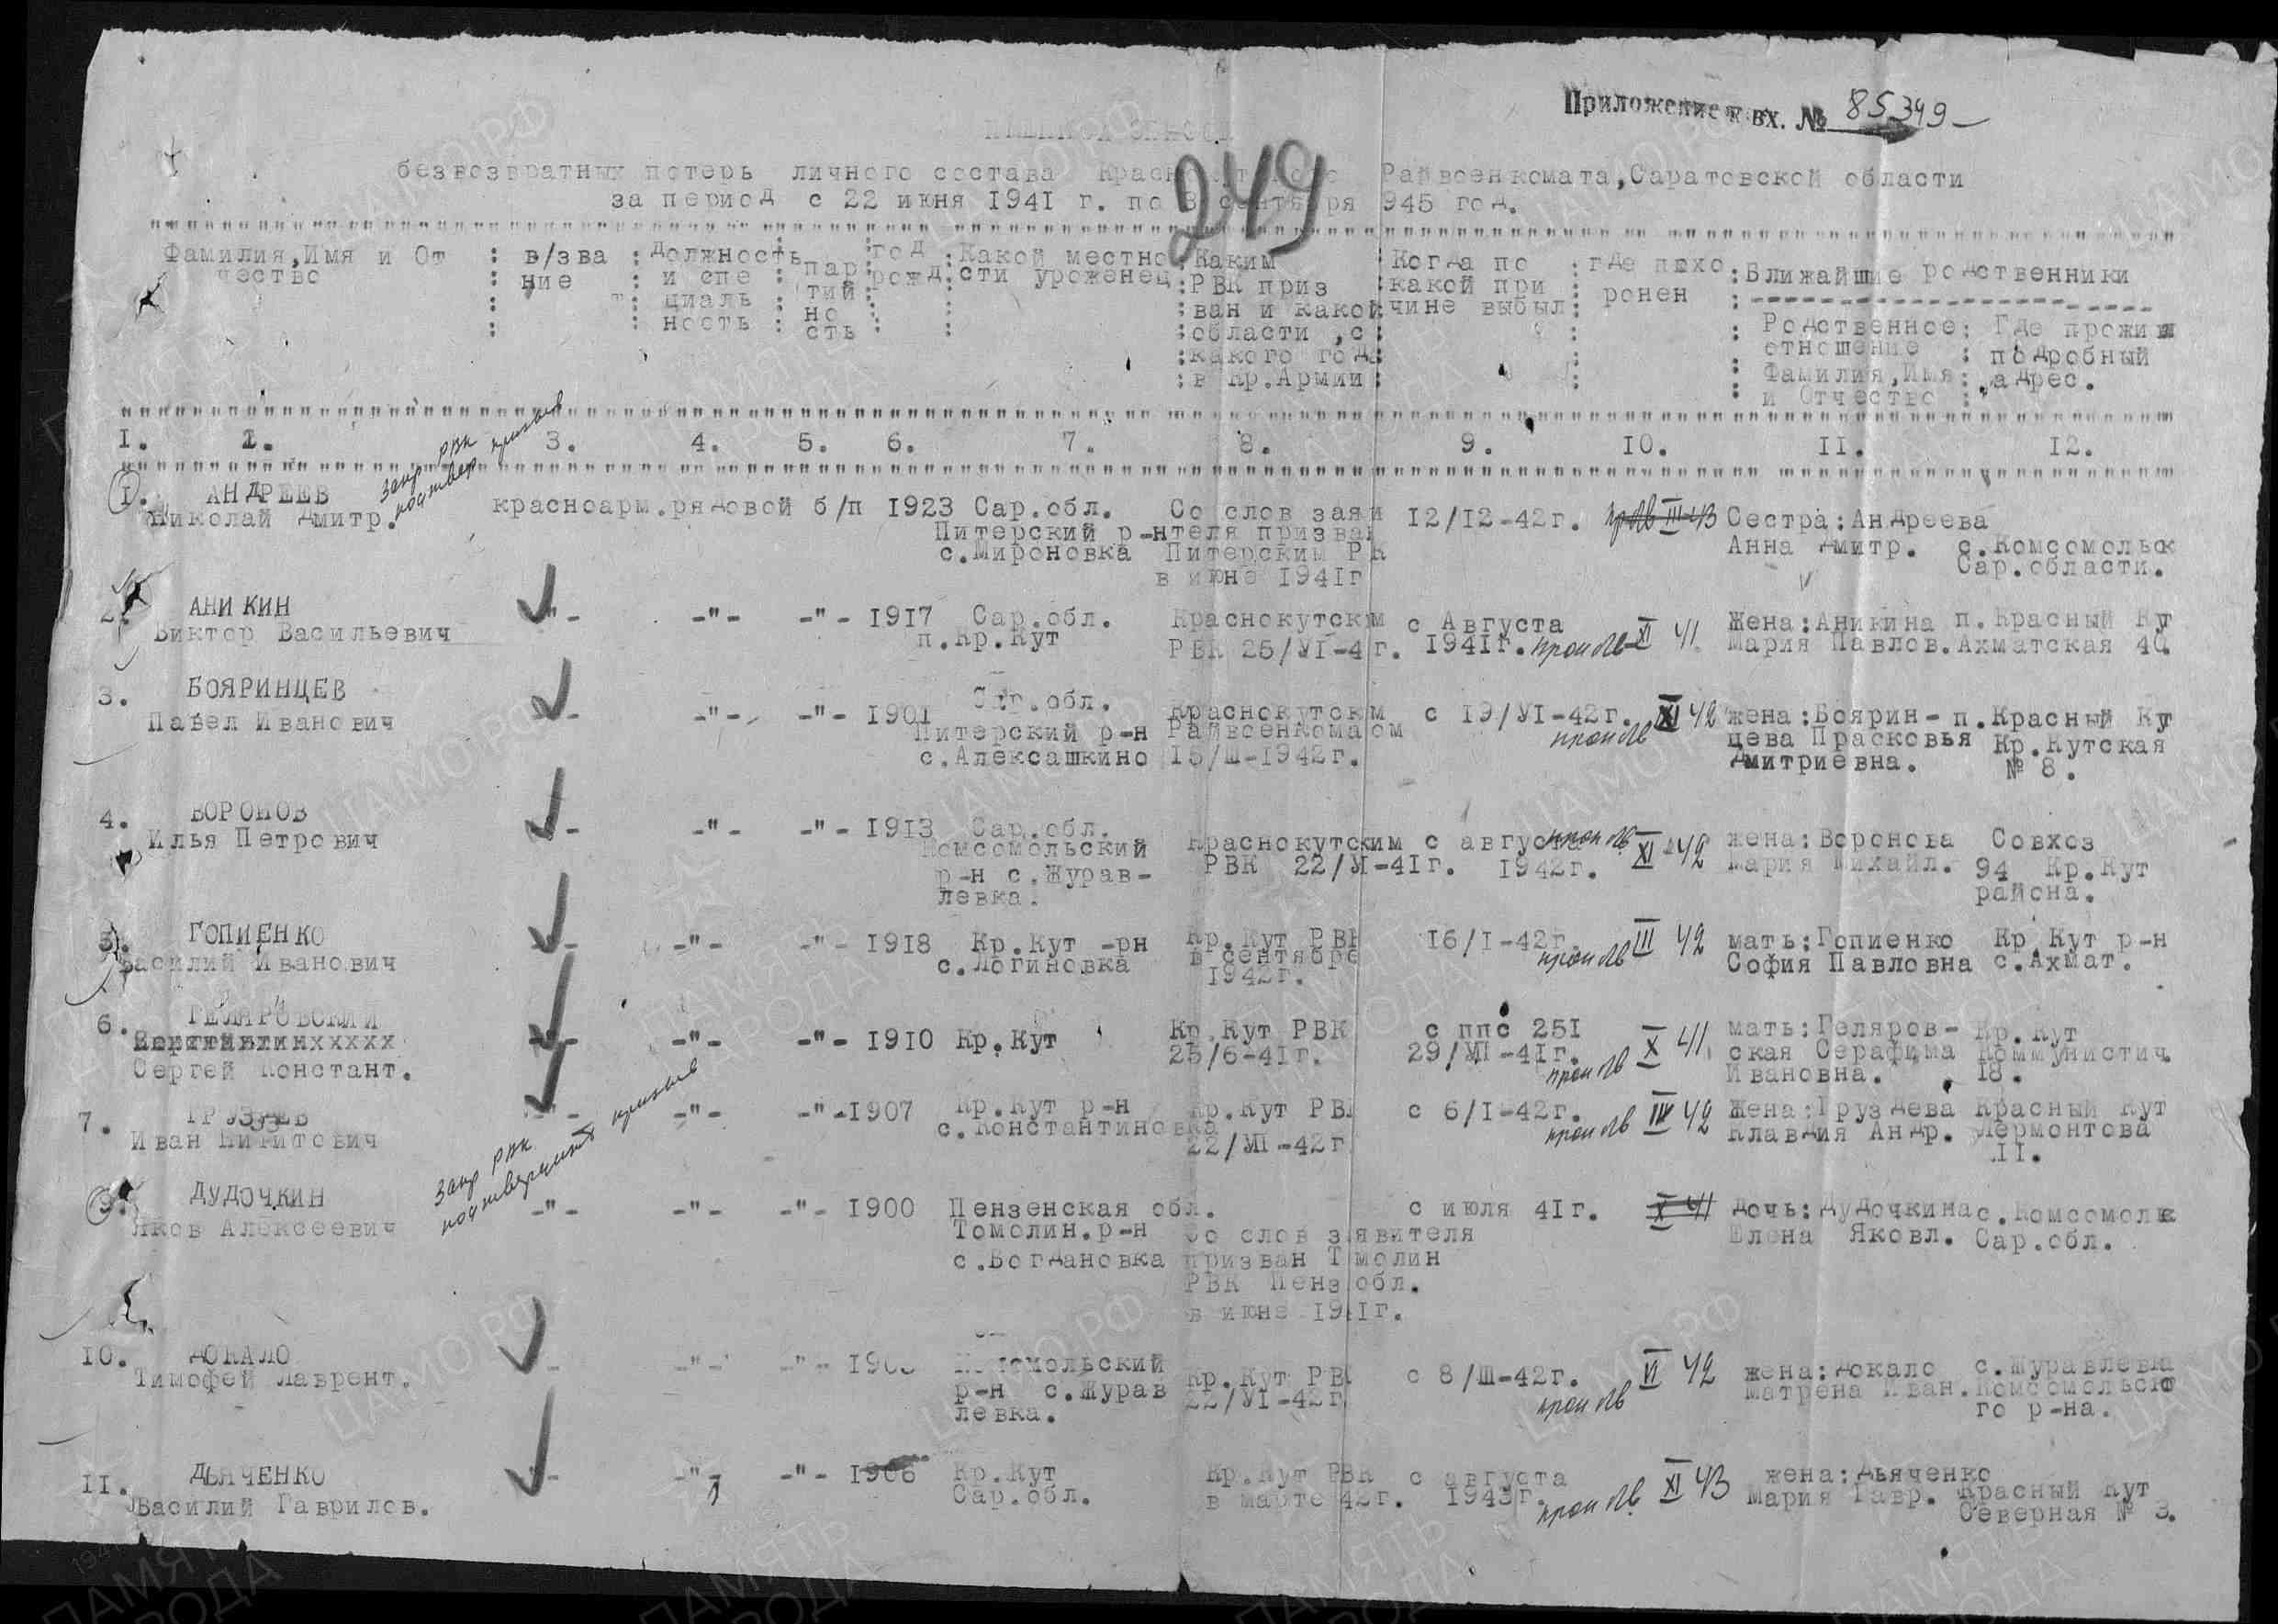 Приложение к вх. № 85349
249
безвозвратных потерь личного состава Райвоенкомата,Саратовской области
за период с 22 июня 1941 г. по 3 сентября 945 год.
Фамилия,Имя и От чество : в/зва ние : должность и спе циаль ность : пар тий но сть : год рожд : Какой местно сти уроженец : Каким РВК приз ван и какой области ,с какого года в Кр.Армии : Когда по какой при чине выбыл : где похо ронен : Ближайшие родственники
Родственное отношение Фамилия,Имя и Отчество : Где прожи подробный адрес.
1. 2. 3. 4. 5. 6. 7. 8. 9. 10. 11. 12.
запр РВК
подтвер призыв
1. АНДРЕЕВ
Николай Дмитр. красноарм.рядовой б/п 1923 Сар.обл. Со слов заяви 12/12-42г. проп б/в III-43 Сестра:Андреева
Питерский р-н теля призван
с.Мироновка Питерским РК Анна Дмитр. с.Комсомольск
в июне 1941г Сар.области.
2. АНИКИН
Виктор Васильевич -"- -"- -"- 1917 Сар.обл. Краснокутским с Августа Жена:Аникина п.Красный Кут
п.Кр.Кут РВК 25/VI-4 г. 1941г. проп б/в XI 41. Мария Павлов. Ахматская 40.
3. БОЯРИНЦЕВ
Павел Иванович -"- -"- 1901 Сар.обл. Краснокутским с 19/VI-42г. XI 42 жена:Боярин- п.Красный Кут
Питерский р-н Райвоенкоматом проп б/в цева Прасковья Кр.Кутская
с.Алексашкино 15/Ш-1942г. Дмитриевна. № 8.
4. ВОРОНОВ
Илья Петрович -"- -"- 1913 Сар.обл. Краснокутским с августа проп б/в XI-42 жена:Воронова Совхоз
Комсомольский РВК 22/VI-41г. 1942г. Мария Михайл. 94 Кр.Кут
р-н с.Журав- района.
левка.
5. ГОПИЕНКО
Василий Иванович -"- -"- 1918 Кр.Кут -рн Кр.Кут РВК 16/1-42г. проп б/в III 42 мать:Гопиенко Кр.Кут р-н
с.Логиновка в сентябре София Павловна с.Ахмат.
1942г.
6. ГЕЛЯРОВСКИЙ
Сергей Констант. -"- -"- -"- 1910 Кр.Кут Кр.Кут РВК с ппс 251 X 41. мать:Геляров- Кр.Кут
25/6-41г. 29/VII-41г. проп б/в ская Серафима Коммунистич.
Ивановна. 18.
7. ГРУЗДЕВ
Иван Никитович -"- -"- -"- 1907 Кр.Кут р-н Кр.Кут РВК с 6/1-42г. проп б/в III 42 Жена:Груздева Красный Кут
с.Константиновка 22/VII-42г Клавдия Андр. Лермонтова
11.
запр РВК
подтвержд призыв
9. ДУДОЧКИН
Яков Алексеевич -"- -"- -"- 1900 Пензенская обл. с июля 41г. X 41 дочь:Дудочкина с.Комсомольск
Томолин.р-н Со слов заявителя Елена Яковл. Сар.обл.
с.Богдановка призван Т молин
РВК Пенз обл.
в июне 19 1г.
10. ДОКАЛО
Тимофей Лаврент. -"- -"- Комсомольский Кр.Кут РВК с 8/Ш-42г. VI 42 жена:Докало с.Журавлевка
р-н с.Журав 22/VI-42г. проп б/в Матрена Иван. Комсомольско
левка. го р-на.
11. ДЬЯЧЕНКО
Василий Гаврилов. -"- -"- -"- 1906 Кр.Кут Кр.Кут РВК с августа жена:Дьяченко
Сар.обл. в марте 42г. 1943г. проп б/в XI 43 Мария Гавр. Красный Кут
Северная № 3.